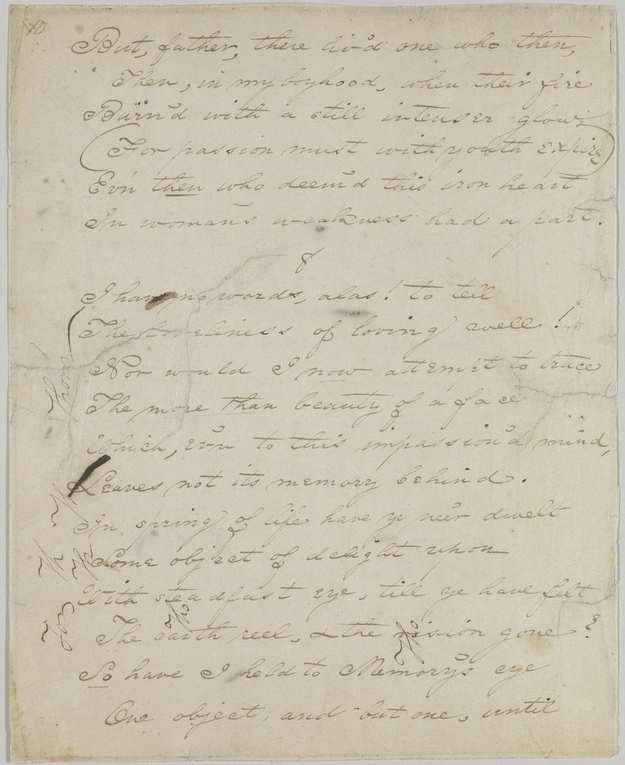 But, father, there liv'd one who then,
Then, in my boyhood, when their fire
Burn'd with a still intenser glow
(For passion must with youth expire)
Ev'n then who deem'd this iron heart
In woman's weakness had a part.
8
I have no words, alas! to tell
The loveliness of loving well!
Nor would I now attempt to trace
The more than beauty of a face
Which, ev'n to this impassion'd mind,
Leaves not its memory behind.
In spring of life have ye ne'er dwelt
Some object of delight upon
With steadfast eye, till ye have felt
The earth reel, & the vision gone?
So have I held to Memory's eye
One object, and but one, until